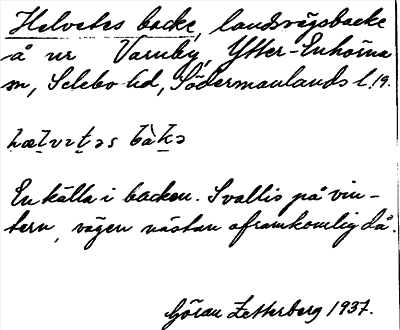 Helvetes backe, landsvägsbacke
å nr Varnby, Ytter-Enhörna
sn, Selebo hd, Södermanlands l. 19.
hælvətəs bàkə
En källa i backen. Svallis på vin-
tern, vägen nästan oframkomlig då.
Göran Zetterberg 1937.